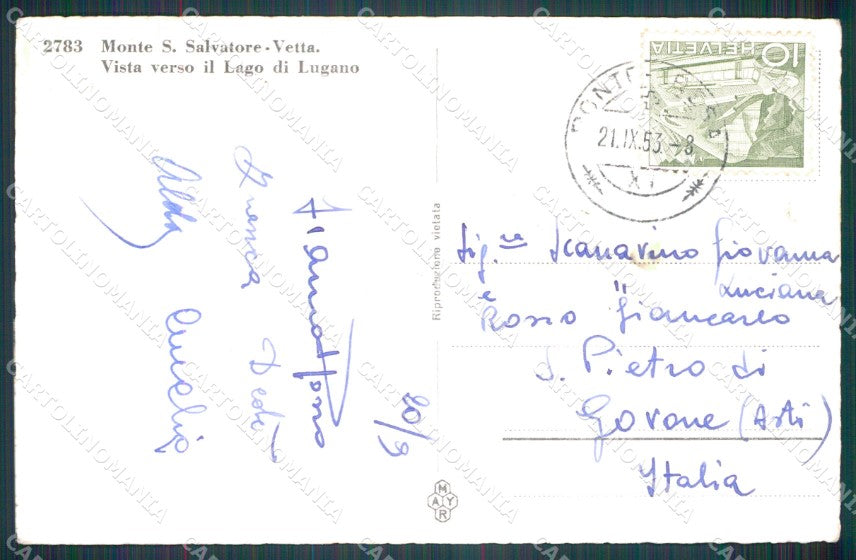 2783 Monte S. Salvatore - Vetta.
Vista verso il Lago di Lugano
HELVETIA
10
PONTE TRESA
21.IX.53.-8
Aldo
Amelia
20/9
Riproduzione vietata
Sig.re Scanavino Giovanna
è " Luciana
Rosso Giancarlo
S. Pietro di
Govone (Asti)
Italia
MAYR
CARTOLINOMANIA